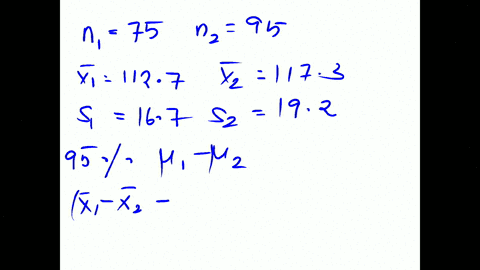 n₁ = 75 n₂ = 95
x̄₁ = 112.7 x̄₂ = 117.3
S₁ = 16.7 S₂ = 19.2
95% μ₁ - μ₂
(x̄₁ - x̄₂ -